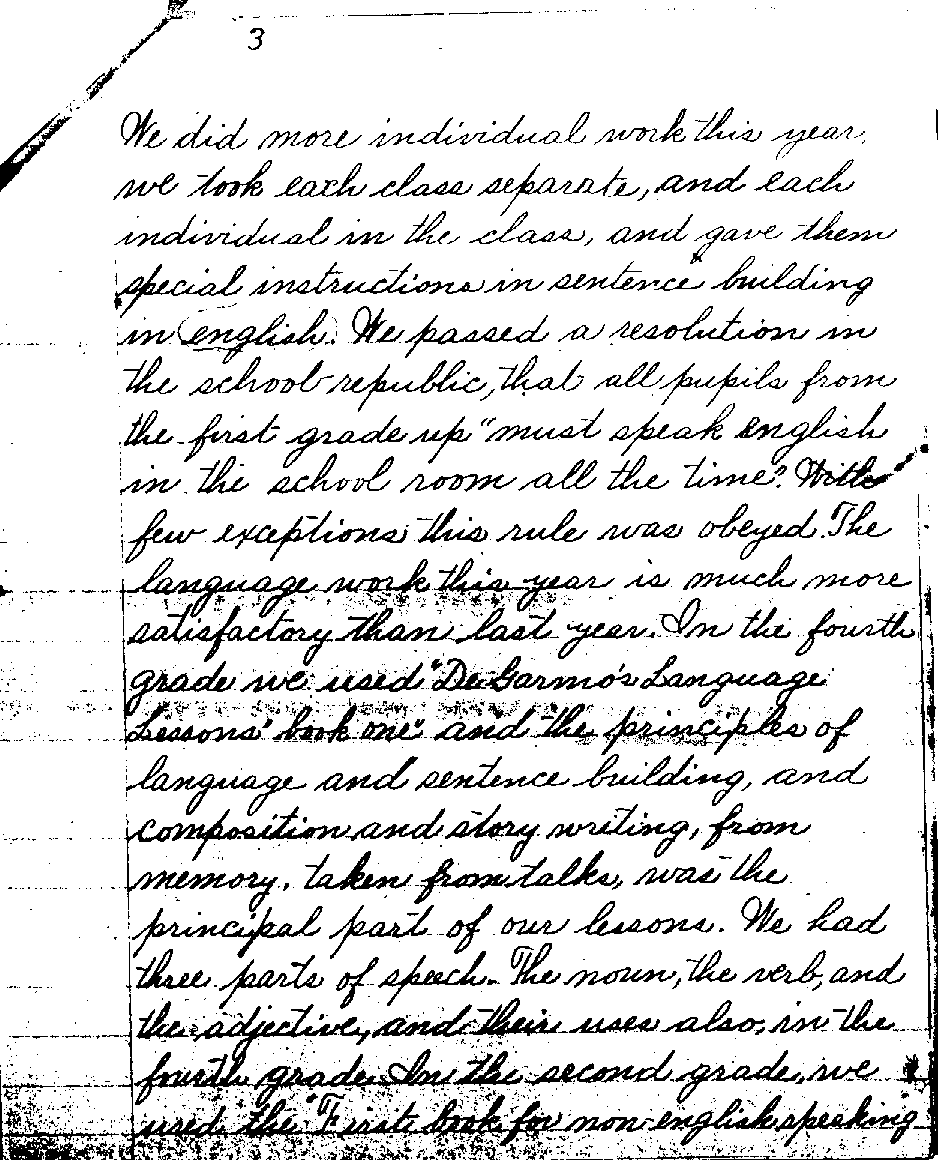 3
We did more individual work this year,
we took each class separate, and each
individual in the class, and gave them
special instructions in sentence building
in english. We passed a resolution in
the school republic, that all pupils from
the first grade up "must speak english
in the school room all the time". With
few exceptions this rule was obeyed. The
language work this year is much more
satisfactory than last year. In the fourth
grade we used "De Garmo's Language
Lessons" book one" and the principles of
language and sentence building, and
composition and story writing, from
memory, taken from talks, was the
principal part of our lessons. We had
three parts of speech. The noun, the verb, and
the adjective, and their uses also, in the
fourth grade. In the second grade, we
used the "First book for non-english speaking